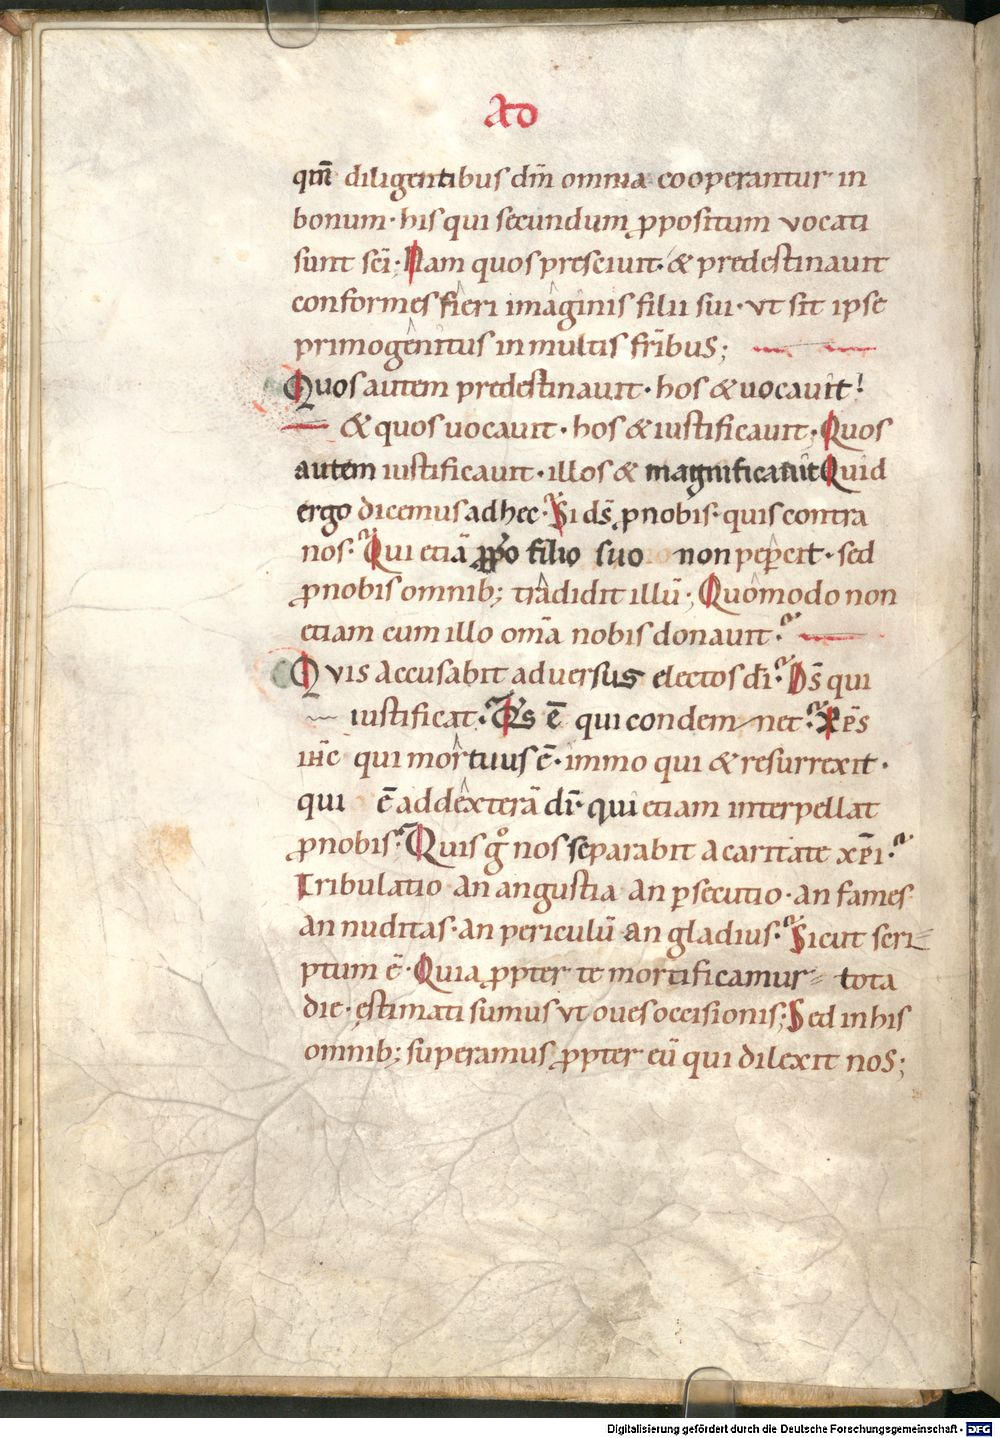 AD
qm̅ diligentibus dm̅ omnia cooperantur in
bonum · his qui secundum ꝓpositum vocati
sunt sc̅i · Nam quos presciuit · & predestinauit
conformes fieri imaginis filii sui · vt sit ipse
primogenitus in multis fr̅ibus ;
Quos autem predestinauit · hos & uocauit !
& quos uocauit · hos & iustificauit · Quos
autem iustificauit · illos & magnificauit Quid
ergo dicemus ad hec · Si ds̅ ꝓ nobis · quis contra
nos · Qui etia̅ filio suo non peꝑcit · sed
ꝓ nobis omnib; tradidit illu̅ ; Quomodo non
etiam cum illo om̅a nobis donauit ·
Qvis accusabit aduersus electos di̅ · Ds̅ qui
iustificat · Qis e̅ qui condemnet · Xp̅s
ih̅c qui mortuus e̅ · immo qui & resurrexit ·
qui e̅ ad dextera̅ di̅ · qui etiam interpellat
ꝓ nobis · Quis gͦ nos separabit a caritate xp̅i ·
Tribulatio · an angustia · an ꝑsecutio · an fames ·
an nuditas · an periculu̅ an gladius · Sicut scri=
ptum e̅ · Quia ꝓpter te mortificamur = tota
die · estimati sumus vt oues occisionis ; Sed in his
omnib; superamus ꝓpter eu̅ qui dilexit nos ;
Digitalisierung gefördert durch die Deutsche Forschungsgemeinschaft - DFG